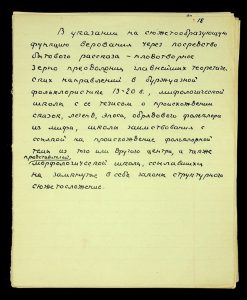 18
В указании на сюжетообразующую
функцию верования через посредство
бытового рассказа - плодотворное
зерно преодоления главнейших теоретиче-
ских направлений в буржуазной
фольклористике 19-20 в., мифологической
школы с ее тезисом о происхождении
сказок, легенд, эпоса, обрядового фольклора
из мифа, школы заимствования с
ссылкой на происхождение фольклорной
темы из того или другого центра, а также
представителей
морфологической школы, ссылавшихся
на замкнутые в себе законы структурного
сюжетосложения.